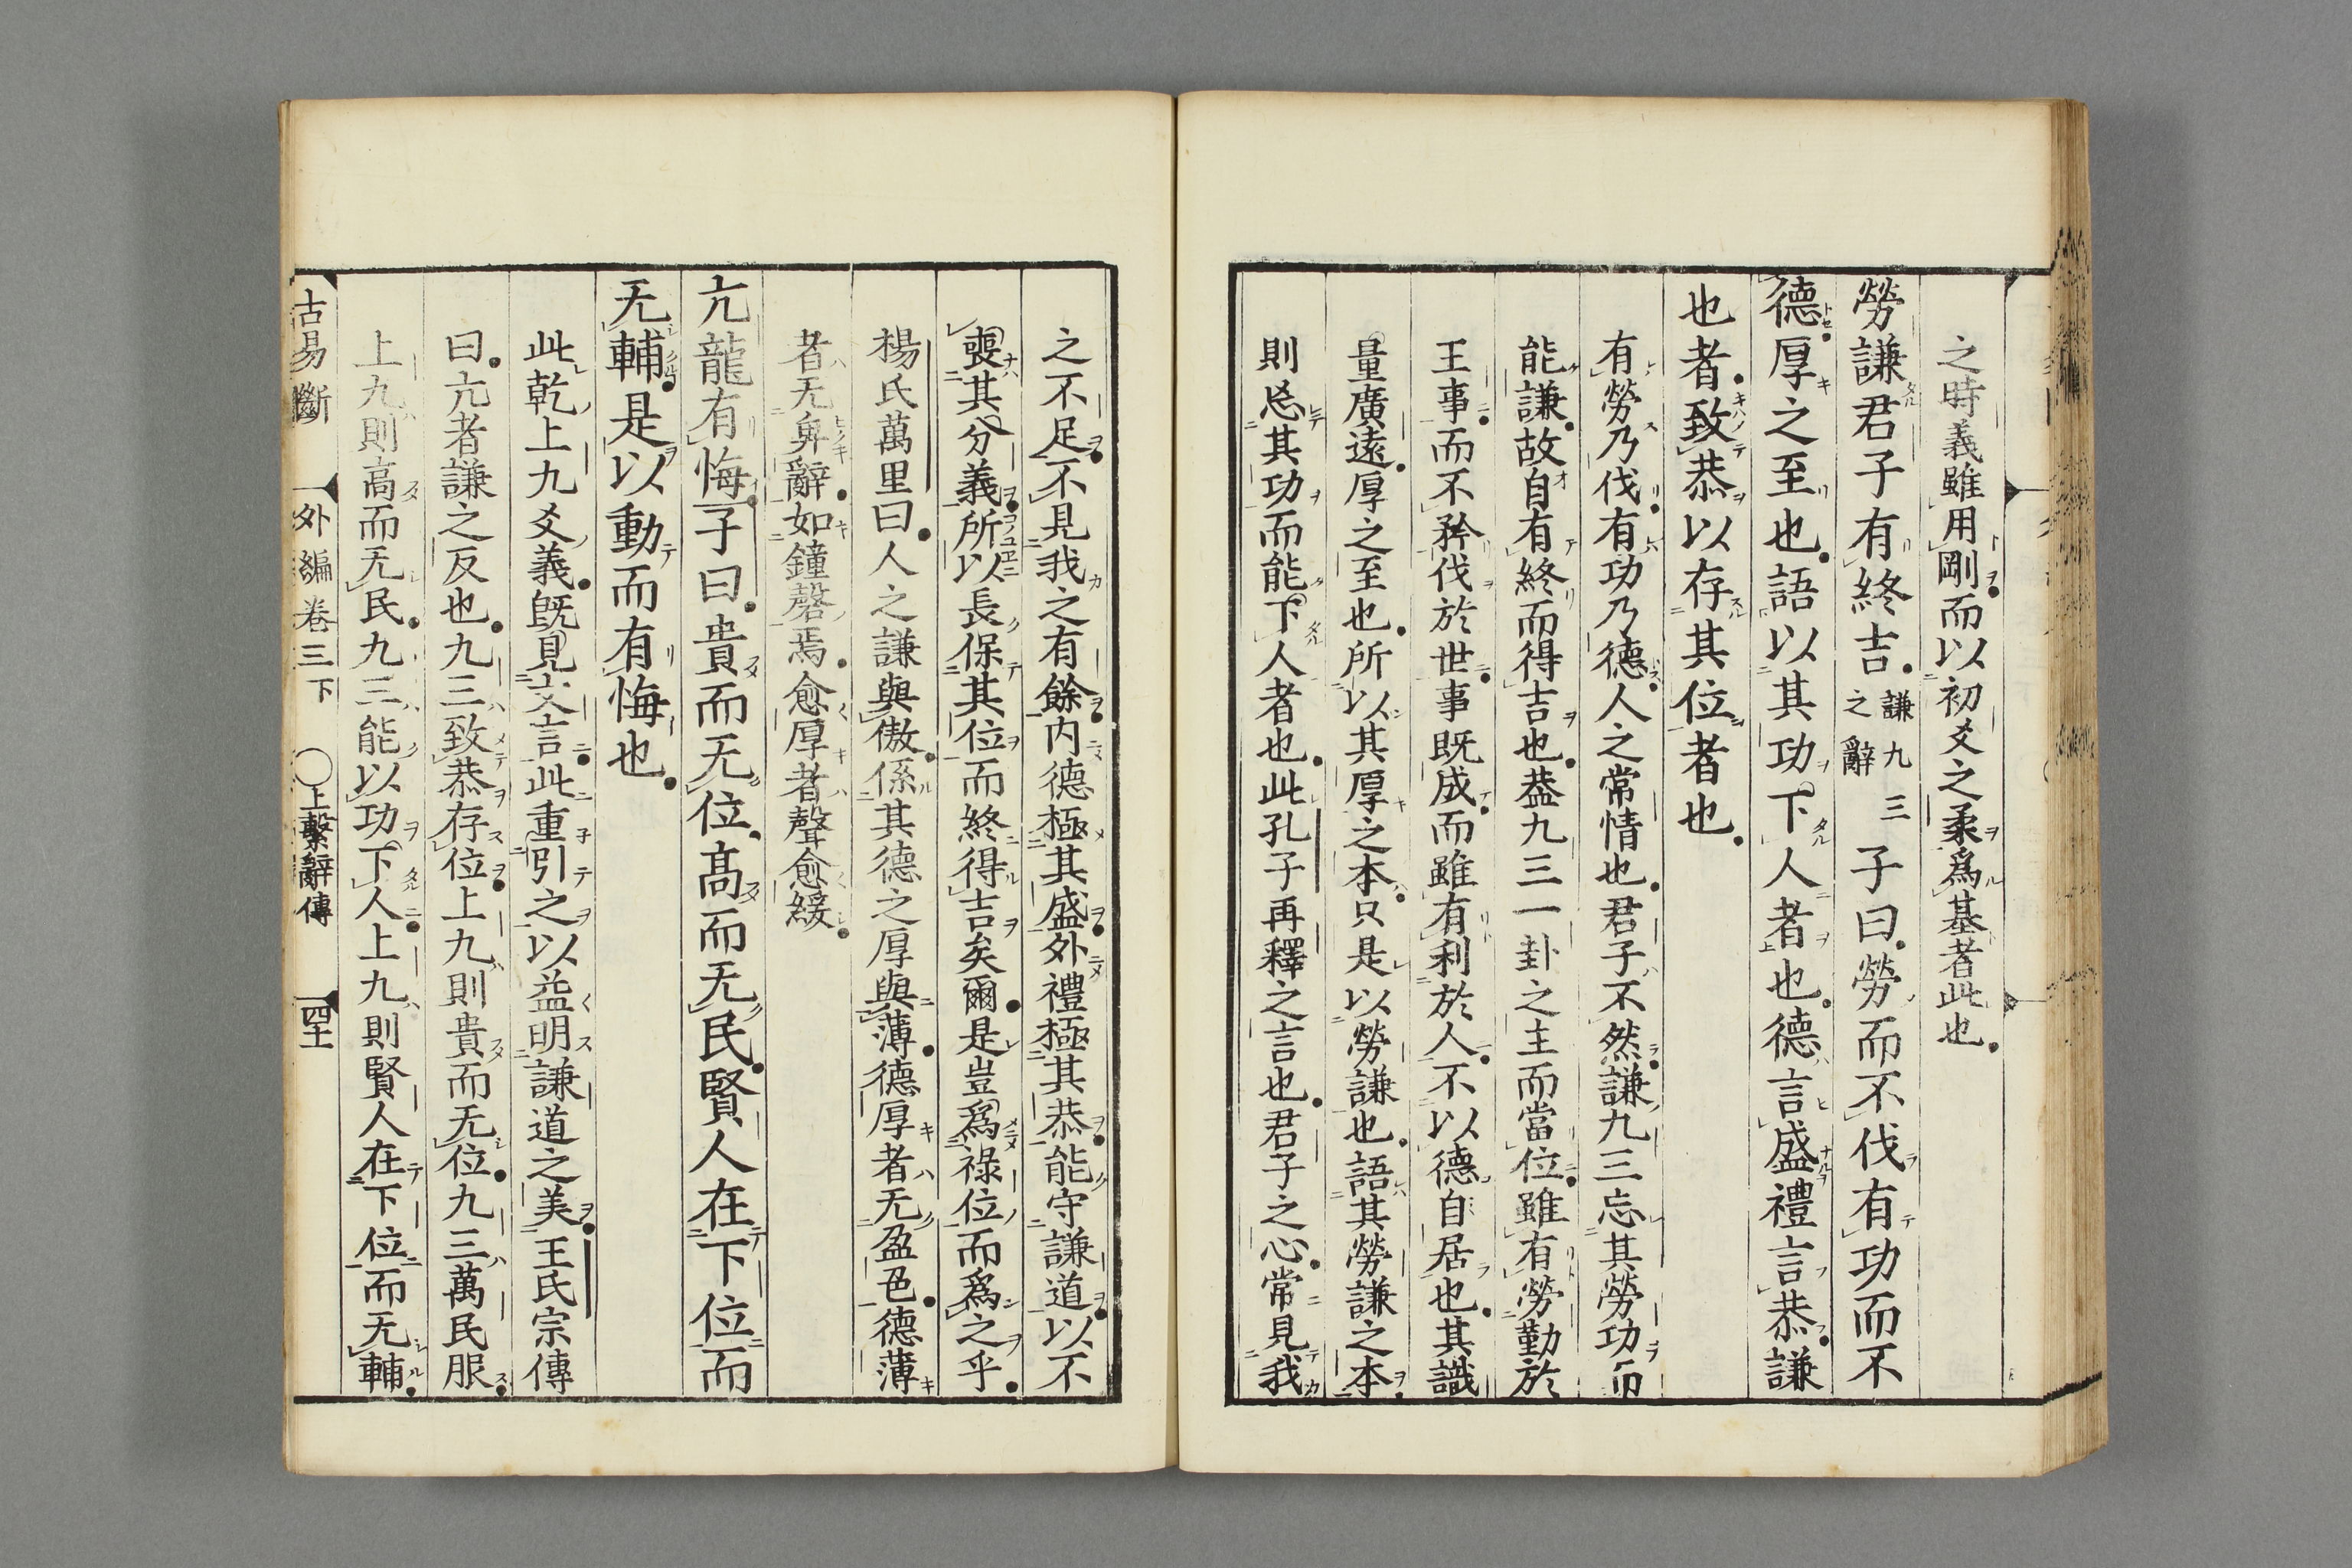 之時義雖用剛而以初爻之柔爲基者此也
勞謙君子有終吉謙九三之辭子曰勞而不伐有功而不
德厚之至也語以其功下人者也德言盛禮言恭謙
也者致恭以存其位者也
有勞乃伐有功乃德人之常情也君子不然謙九三忘其勞功而
能謙故自有終而得吉也葢九三一卦之主而當位雖有勞勤於
王事而不矜伐於世事既成而雖有利於人不以德自居也其識
量廣遠厚之至也所以其厚之本只是以勞謙也語其勞謙之本
則忘其功而能下人者也此孔子再釋之言也君子之心常見我
之不足不見我之有餘内德極其盛外禮極其恭能守謙道以不
喪其分義所以長保其位而終得吉矣爾是豈爲祿位而爲之乎
楊氏萬里曰人之謙與傲係其德之厚與薄德厚者无盈色德薄
者无卑辭如鐘磬焉愈厚者聲愈緩
亢龍有悔子曰貴而无位高而无民賢人在下位而
无輔是以動而有悔也
此乾上九爻義既見文言此重引之以益明謙道之美王氏宗傳
曰亢者謙之反也九三致恭存位上九則貴而无位九三萬民服
上九則高而无民九三能以功下人上九則賢人在下位而无輔
古易斷 外編卷三下 ○上繫辭傳 四十